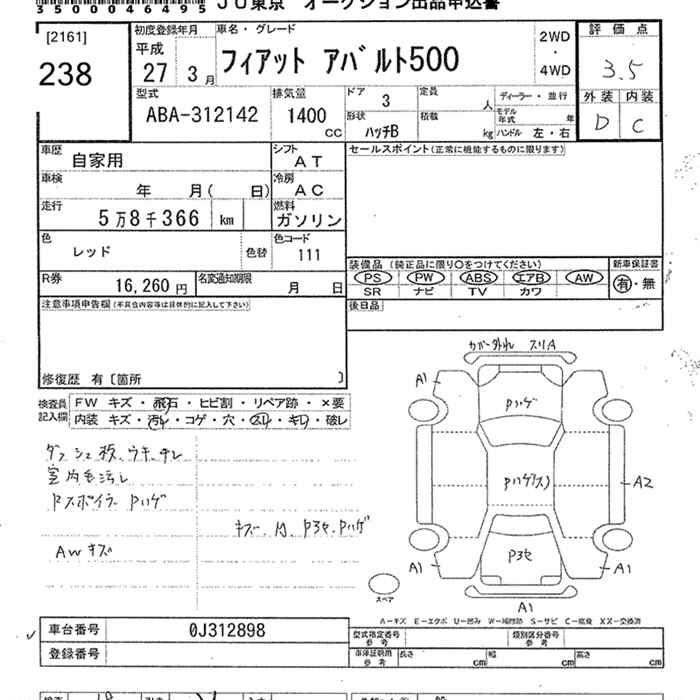 3500046495 JU東京 オークション出品申込書
[2161]
238
初度登録年月
平成
27 3月
車名・グレード
フィアット アバルト500
2WD
・
4WD
評価点
3.5
外装 内装
D C
型式
ABA-312142
排気量
1400
CC
ドア
3
形状
ハッチB
定員
人
積載
kg
ディーラー・並行
モデル年式 年
ハンドル 左・右
車歴
自家用
シフト
AT
車検
年 月( 日)
冷房
AC
走行
5万8千366 km
燃料
ガソリン
色
レッド
色替
色コード
111
R券
16,260円
名変通知期限
月 日
セールスポイント(正常に機能するものに限ります)
装備品 (純正品に限り○をつけてください)
PS PW ABS エアB AW
SR ナビ TV カワ
新車保証書
有・無
後日品
注意事項申告欄(不具合内容等は具体的に記入して下さい)
修復歴 有〔箇所 〕
検査員記入欄
FW キズ・飛石・ヒビ割・リペア跡・×要
内装 キズ・汚レ・コゲ・穴・スレ・キレ・破レ
室内毛汚レ
Rスポイラー Pハゲ
AWキズ
カバー外れ スリA
A1
Pハゲ
A2
A1
A1
A1
スペア
A-キズ E-エクボ U-凹み W-補修跡 S-サビ C-腐食 XX-交換済
車台番号
0J312898
登録番号
型式指定番号
参考
類別区分番号
参考
車体証明用
参考
長さ cm 幅 cm 高さ cm